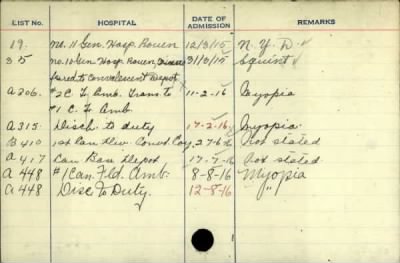 LIST No. HOSPITAL DATE OF ADMISSION REMARKS
19. No. 11 Gen. Hosp. Rouen 12/3/15 N. Y. D.
35 No. 10 Gen. Hosp. Rouen, 31/3/15 Squint
ferred to Convalescent Depot
A 206. #2 C. F. Amb. Trans. to 11-2-16 Myopia
#1 C. F. Amb.
A 315. Disch. to duty 17-2-16 Myopia
B 410 1st Can. Conval Coy 27-6-16 Not stated
A 417 Can Base Depot 17-7-16 Not stated
A 448 #1 Can. Fld. Amb. 8-8-16 Myopia
A 448 Disc. To Duty. 12-8-16 "